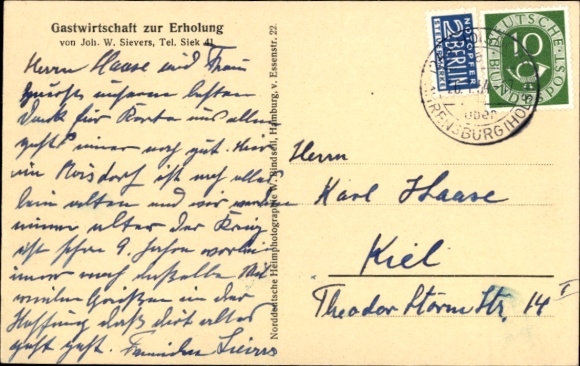 Gastwirtschaft zur Erholung
von Joh. W. Sievers, Tel. Siek 41
Herrn Haase und Frau
zuerst unseren besten
Dank für Karte uns allen
geht's immer noch gut. Hier
in ist noch alles
beim alten und wir werden
immer älter der Krieg
ist schon 9 Jahre vorbei
immer noch dasselbe Mit
vielen Grüßen in der
Hoffnung daß dort alles
geht gut. Familie Sievers
Norddeutsche Heimphotographie W. Bindseil, Hamburg, v. Essenstr. 22
NOTOPFER
2 BERLIN
STEUERMARKE
DEUTSCHE BUNDESPOST
10
über
AHRENSBURG (HOLST)
Herrn
Karl Haase
Kiel
Theodor Storm Str. 14 I